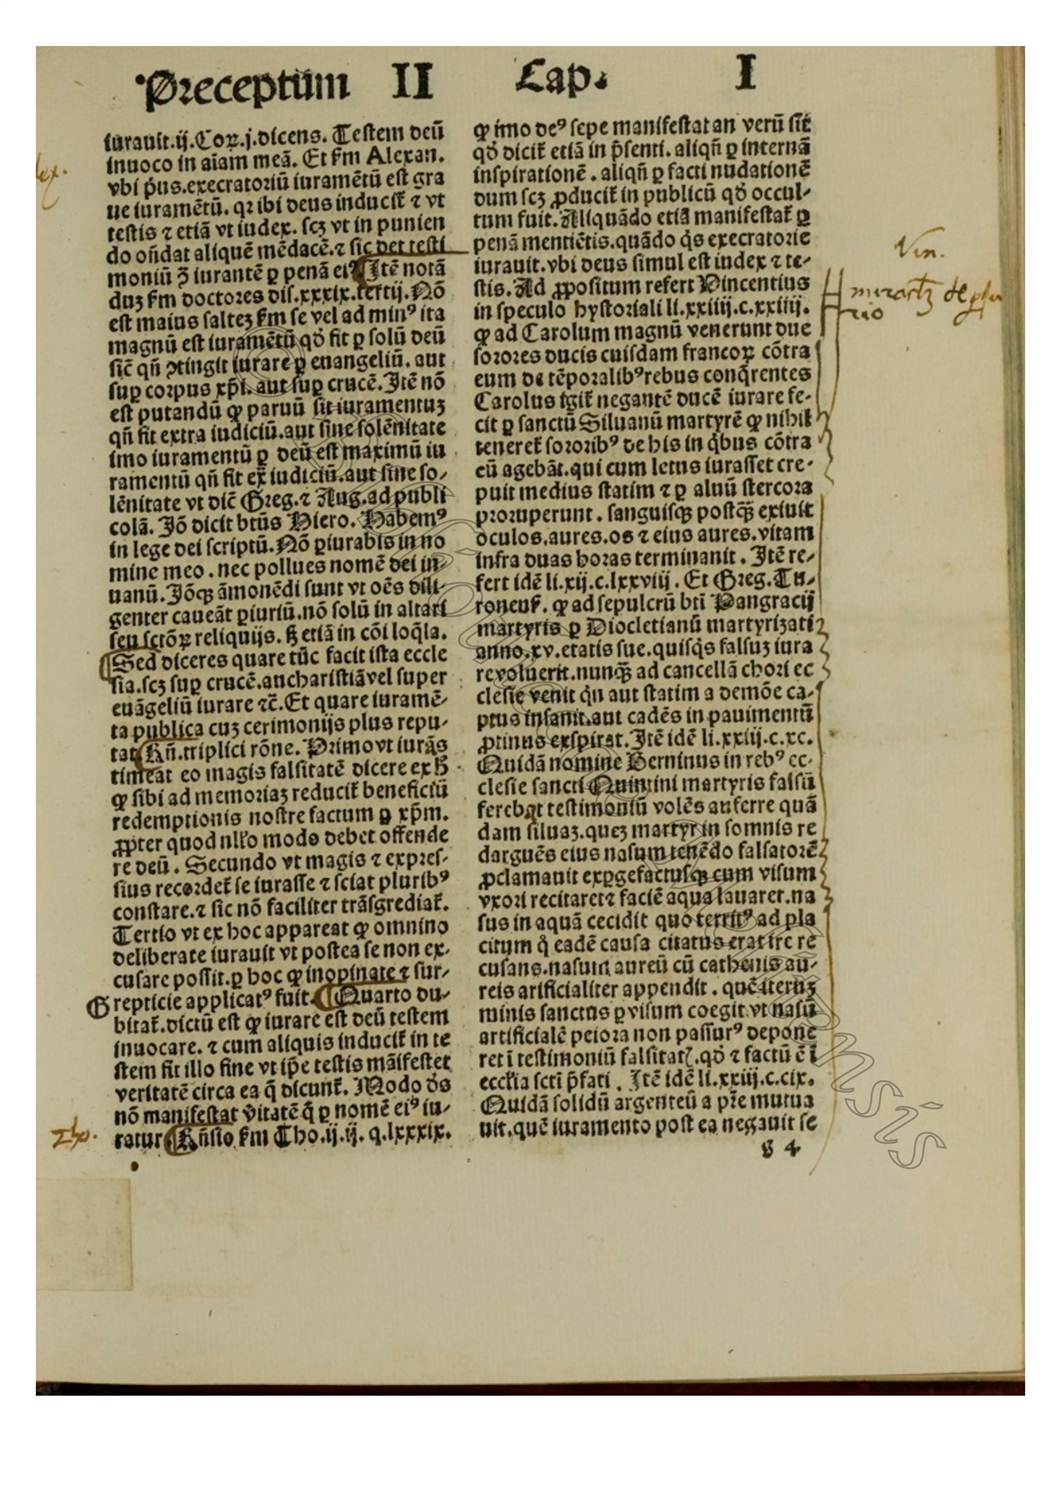 Preceptum II Cap. I
iurauit.ij.Coꝝ.j.dicens. Testem deū
inuoco in aīam meā. Et fm Alexan.
vbi p̄us.execratoriū iuramētū est gra
ue iuramētū. qꝛ ibi deus inducit̃ ⁊ vt
testis ⁊ etiā vt iudex. scꝫ vt in punien
do oñdat aliquē mēdacē.⁊ sic det testi
moniū ꝯ̄ iurantē ꝑ penā eiꝰ ¶Itē notā
duꝫ fm doctores dis.xxxix.tertij. Nō
est maius salteꝫ fm se vel ad minꝰ ita
magnū est iuramētū qđ fit ꝑ solū deū
sic̄ qñ ↄtingit iurare ꝑ euangeliū. aut
suꝑ corpus xp̄i. aut suꝑ crucē. Itē nō
est putandū ꝙ paruū sit iuramentuꝫ
qñ fit extra iudiciū.aut sine solēnitate
imo iuramentū ꝑ deū est maximū iu
ramentū qñ fit ex̄ iudiciū.aut sine so/
lēnitate vt dic̄ Greg.⁊ Aug.ad publi
colā. Iō dicit btūs Hiero. Habemꝰ
in lege dei scriptū. Nō ꝑiurabis in no
mine meo . nec pollues nomē dei in/
uanū. Iōqꝫ āmonēdi sunt vt oēs dili/
genter caueāt ꝑiuriū.nō solū in altari
seu sctōꝝ reliquijs. ꝫ etiā in cōi loq̄la.
¶Sed diceres quare tūc facit ista eccle
sia.scꝫ suꝑ crucē.aucharistiā vel super
euāgeliū iurare ⁊c̄. Et quare iuramē/
ta publica cuꝫ cerimonijs plus repu/
tat ¶Rñ.triplici rōne. Primo vt iurās
timeat eo magis falsitatē dicere ex h̄
ꝙ sibi ad memoriaꝫ reducit̃ beneficiū
redemptionis nostre factum ꝑ xp̄m.
ꝓpter quod nllo modo debet offende
re deū . Secundo vt magis ⁊ expres/
sius recordet̃ se iurasse ⁊ sciat pluribꝰ
constare.⁊ sic nō faciliter trāsgrediat̃.
Tertio vt ex hoc appareat ꝙ omnino
deliberate iurauit vt postea se non ex/
cusare possit.ꝑ hoc ꝙ inopinate ⁊ sur/
G repticie applicatꝰ fuit. ¶Quarto du/
bitat̃.dictū est ꝙ iurare est deū testem
inuocare. ⁊ cum aliquis inducit̃ in te
stem fit illo fine vt ip̄e testis māifestet
veritatē circa ea q̄ dicunt̃. Modo ds̄
nō manifestat v̄itatē q̄ ꝑ nomē eiꝰ iu/
ratur ¶Rñsio fm Tho.ij.ij. q.lxxxix.
ꝙ imo deꝰ sepe manifestat an verū sit
qđ dicit̃ etiā in p̄senti. aliqñ ꝑ internā
inspirationē . aliqñ ꝑ facti nudationē
dum scꝫ ꝓducit̃ in publicū qđ occul/
tum fuit. Aliquādo etiā manifestat̃ ꝑ
penā mentiētis.quādo q̄s execratorie
iurauit.vbi deus simul est iudex ⁊ te/
stis. Ad ꝓpositum refert Vincentius
in speculo hystoriali li.xxiiij.c.xxiiij.
ꝙ ad Carolum magnū venerunt due
sorores ducis cuisdam francoꝝ cōtra
eum de tēporalibꝰ rebus conq̄rentes
Carolus igit̃ negantē ducē iurare fe/
cit ꝑ sanctū Siluanū martyrē ꝙ nihil
teneret̃ sororibꝰ de his in q̄bus cōtra
eū agebāt.qui cum letus iurasset cre/
puit medius statim ⁊ ꝑ aluū stercora
proruperunt . sanguisqꝫ postq̄ꝫ exiuit
oculos.aures.os ⁊ eius aures.vitam
infra duas horas terminauit . Itē re/
fert idē li.xij.c.lxxviij . Et Greg.Tu/
roneuſ. ꝙ ad sepulcrū bti Pangracij
martyris ꝑ Diocletianū martyrizati
anno.xv.etatis sue.quisq̄s falsuꝫ iura
re voluerit.nunq̄ꝫ ad cancellā chori ec
clesie venit q̄n aut statim a demōe ca/
ptus insanit.aut cadēs in pauimentū
ꝓtinus exspirat. Itē idē li.xxiij.c.xc.
Quidā nomine Berninus in rebꝰ ec/
clesie sancti Quintini martyris falsū
ferebat testimoniū volēs auferre quā
dam siluaꝫ.queꝫ martyr in somnis re
darguēs eius nasum tenēdo falsatorē
ꝓclamauit exꝑgefactusqꝫ cum visum
vxori recitaret ⁊ faciē aqua lauaret.na
sus in aquā cecidit quo territꝰ ad pla
citum q̄ eadē causa citatus erat ire re
cusans.nasum aureū cū cathenis au/
reis arificialiter appendit . quē iteruꝫ
minis sanctus ꝑ visum coegit vt nasū
artificialē peiora non passurꝰ depone
ret ī testimoniū falsitatꝭ. qđ ⁊ factū ē ī
ecclīa scti p̄fati . Itē idē li.xxiij.c.cix.
Quidā solidū argenteū a pr̄e mutua
uit.quē iuramento post ea negauit se
g 4
Vin.